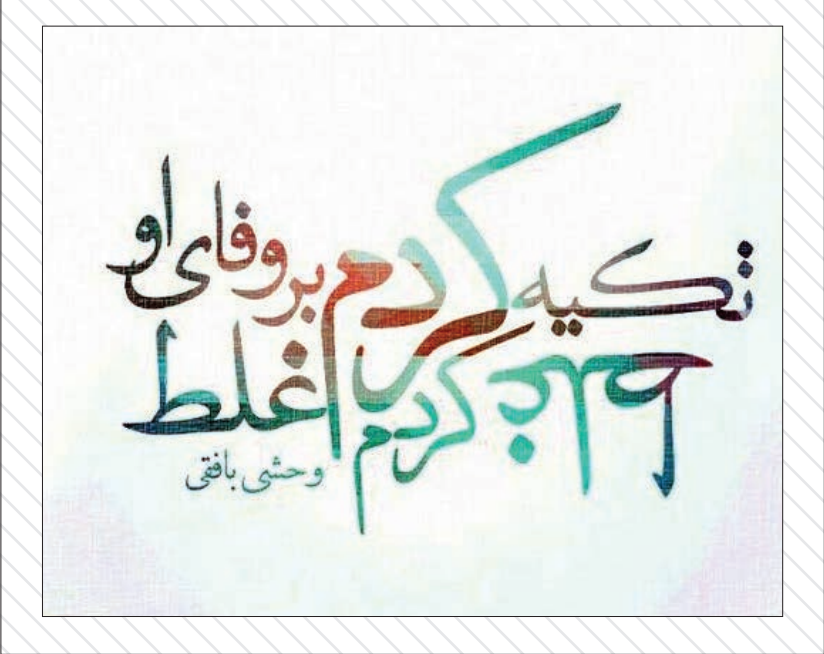 تکیه کردم بر وفای او
غلط کردم غلط
وحشی بافقی